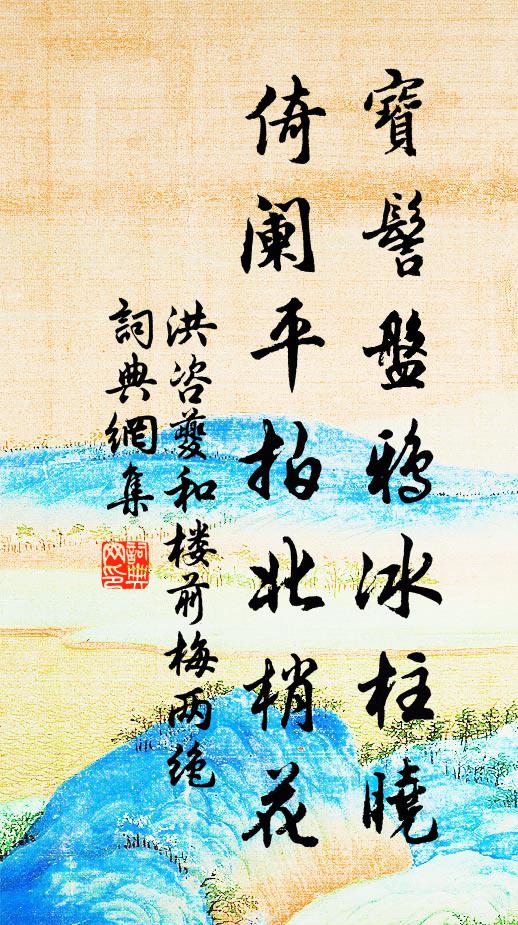 寶髻盤鴉冰柱曉
倚闌平拍北梢花
洪咨夔和楼前梅两绝
詞典網集
詞典網印